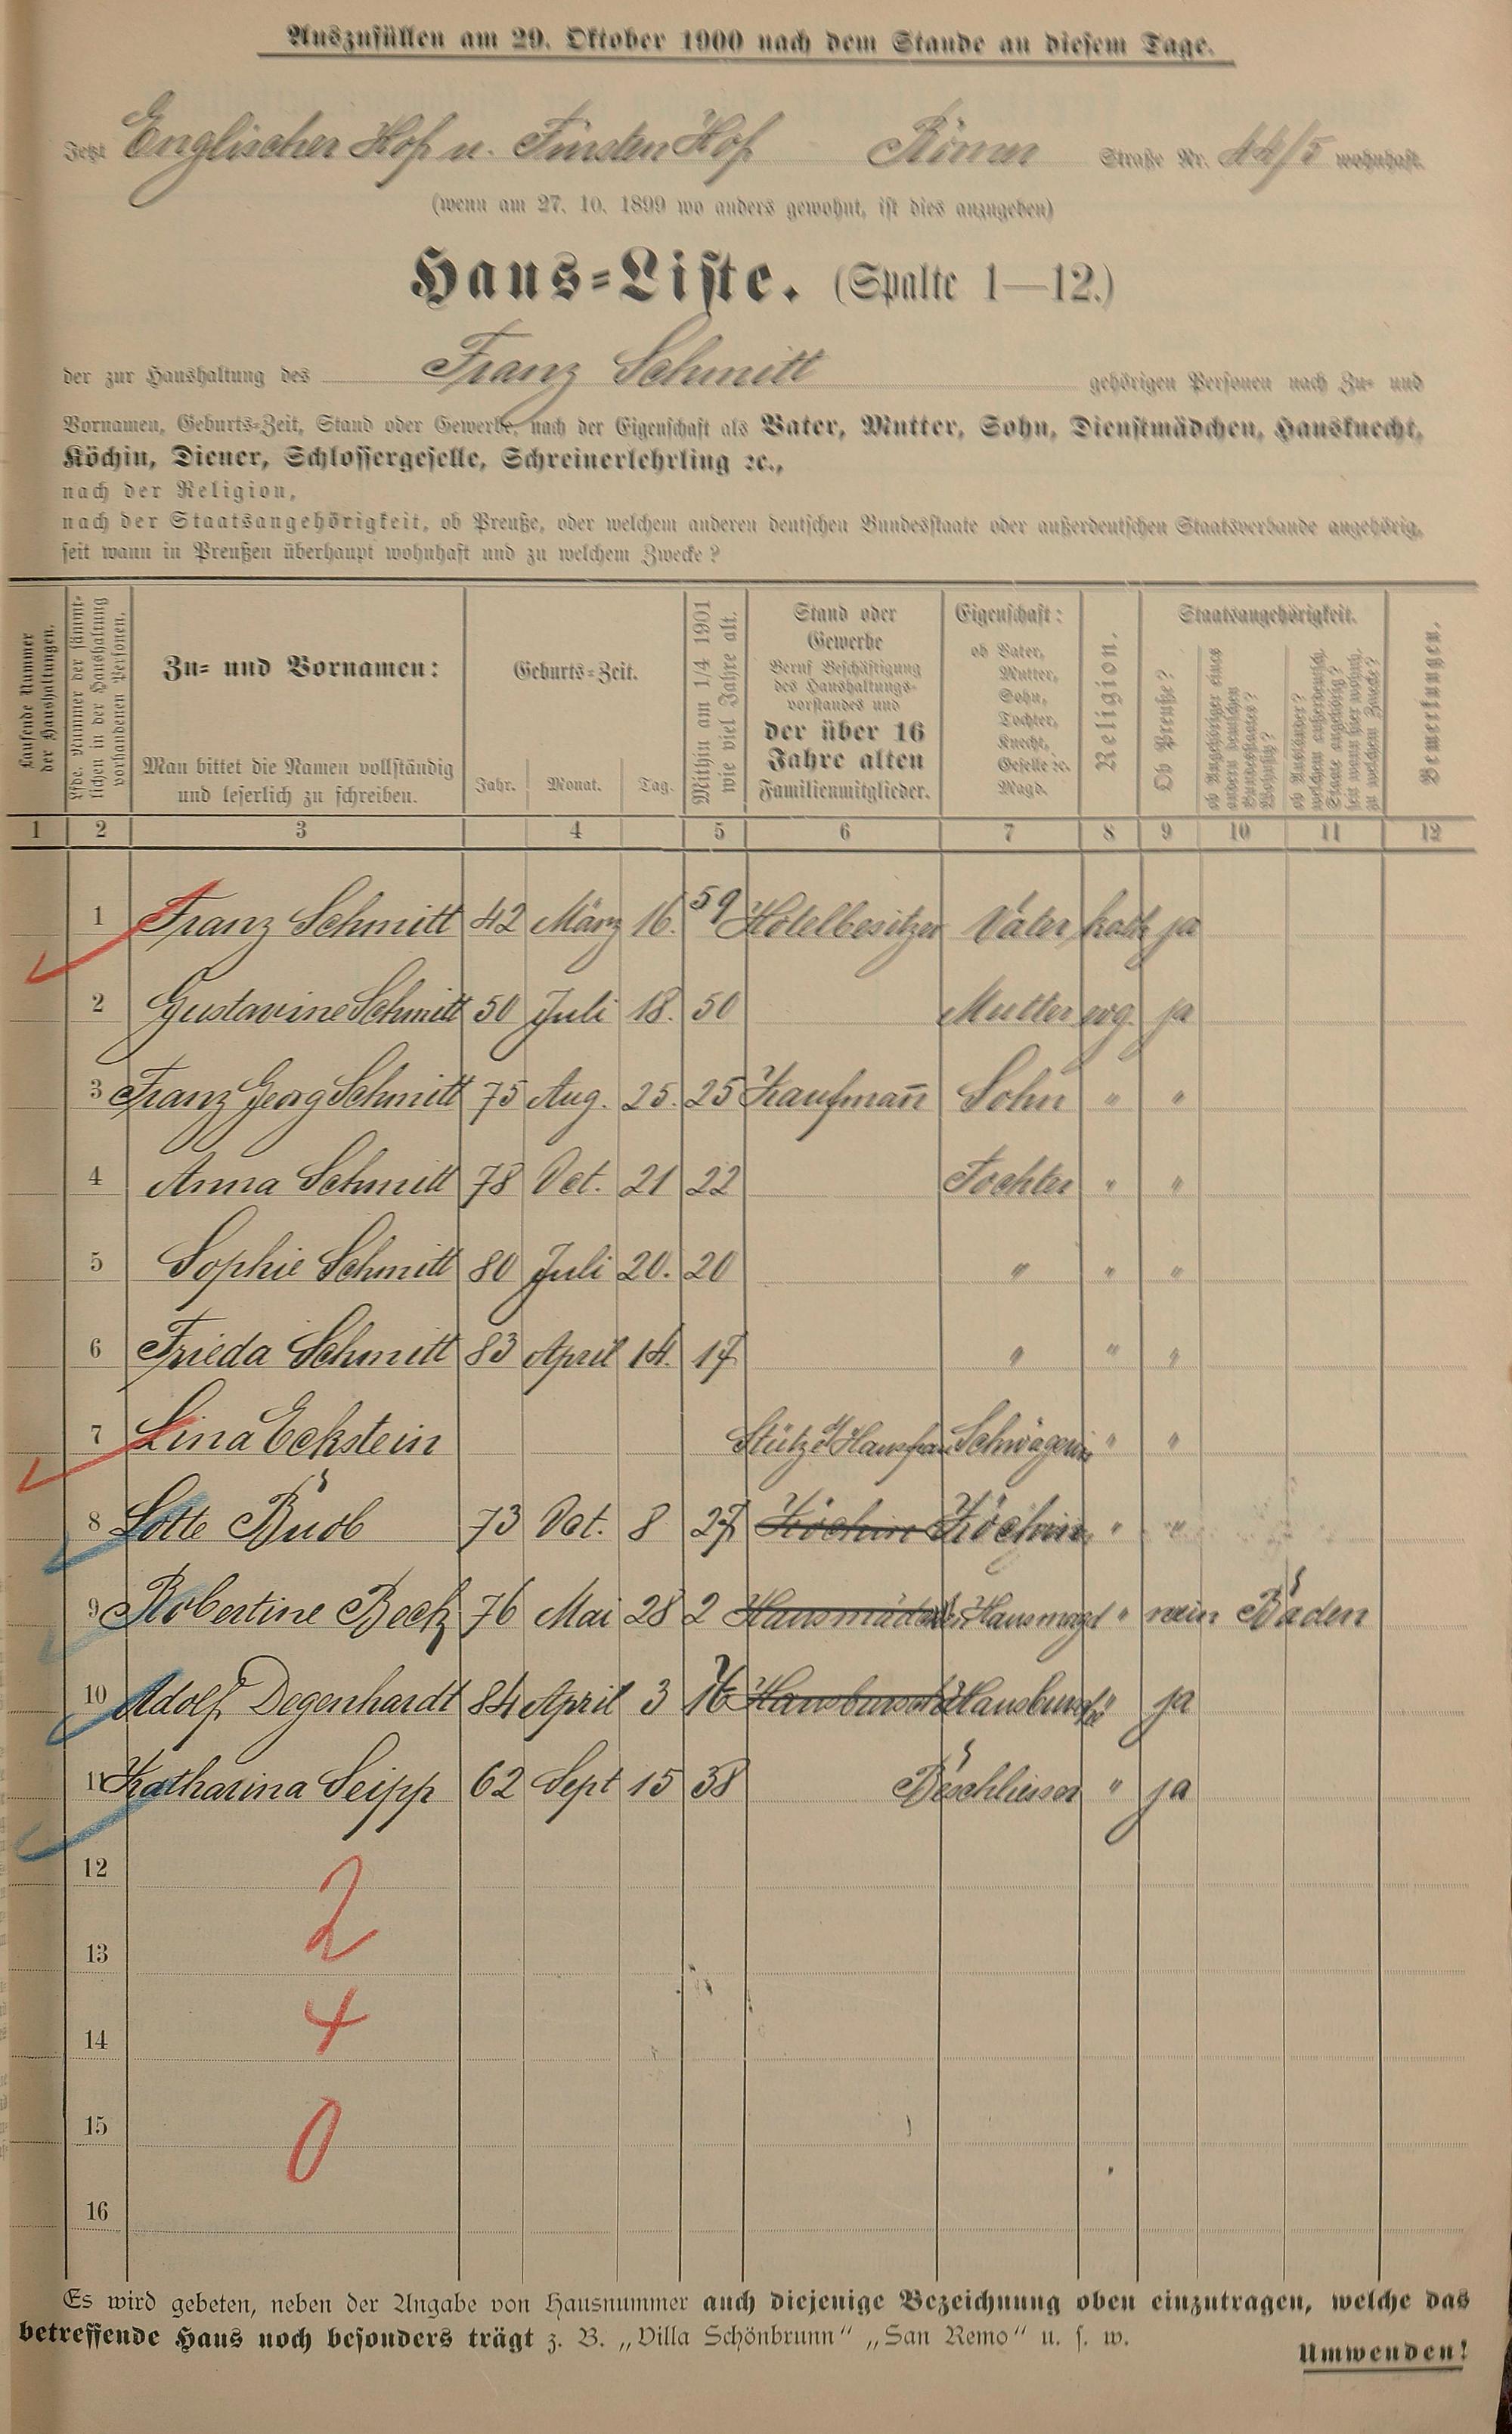 Auszufüllen am 29. Oktober 1900 nach dem Stande an diesem Tage.
Jetzt Englischer Hof u. Fürsten Hof Römer Straße Nr. 44/5 wohnhaft.
(wenn am 27. 10. 1899 wo anders gewohnt, ist dies anzugeben)
Haus-Liste. (Spalte 1—12.)
der zur Haushaltung des Franz Schmitt gehörigen Personen nach Zu- und
Vornamen, Geburts-Zeit, Stand oder Gewerbe, nach der Eigenschaft als Vater, Mutter, Sohn, Dienstmädchen, Hausknecht,
Köchin, Diener, Schlossergeselle, Schreinerlehrling ꝛc.,
nach der Religion,
nach der Staatsangehörigkeit, ob Preuße, oder welchem anderen deutschen Bundesstaate oder außerdeutschen Staatsverbande angehörig,
seit wann in Preußen überhaupt wohnhaft und zu welchem Zwecke?
Laufende Nummer
der Haushaltungen.
Lfde. Nummer der sämmt-
lichen in der Haushaltung
vorhandenen Personen.
Zu- und Vornamen:
Man bittet die Namen vollständig
und leserlich zu schreiben.
Geburts-Zeit.
Jahr. Monat. Tag.
Mithin am 1/4 1901
wie viel Jahre alt.
Stand oder
Gewerbe
Beruf Beschäftigung
des Haushaltungs-
vorstandes und
der über 16
Jahre alten
Familienmitglieder.
Eigenschaft:
ob Vater,
Mutter,
Sohn,
Tochter,
Knecht,
Geselle ꝛc.
Magd.
Religion.
Staatsangehörigkeit.
Ob Preuße?
ob Angehöriger eines
andern deutschen
Bundesstaates?
Wohnsitz?
ob Ausländer?
welchem außerdeutsch.
Staate angehörig?
seit wann hier wohnh.
zu welchem Zwecke?
Bemerkungen.
1 2 3 4 5 6 7 8 9 10 11 12
1 Franz Schmitt 42 März 16. 59 Hôtelbesitzer Vater kath ja
2 Gustavine Schmitt 50 Juli 18. 50 Mutter evg. ja
3 Franz Georg Schmitt 75 Aug. 25. 25 Kaufman̄ Sohn " "
4 Anna Schmitt 78 Oct. 21 22 Tochter " "
5 Sophie Schmitt 80 Juli 20. 20 " " "
6 Frieda Schmitt 83 April 14. 17 " " "
7 Lina Eckstein Stütze d Hausfrau Schwägerin " "
8 Lotte Buob 73 Oct. 8 27 Köchin Köchin " "
9 Robertine Beck 76 Mai 28 2 Hausmädchen Hausmagd " nein Baden
10 Adolf Degenhardt 84 April 3 16 Hausbursche Hausbursche " ja
11 Katharina Seipp 62 Sept 15 38 Beschliesser " ja
12
2
13
14
4
15
0
16
Es wird gebeten, neben der Angabe von Hausnummer auch diejenige Bezeichnung oben einzutragen, welche das
betreffende Haus noch besonders trägt z. B. „Villa Schönbrunn“ „San Remo“ u. s. w.
Umwenden!